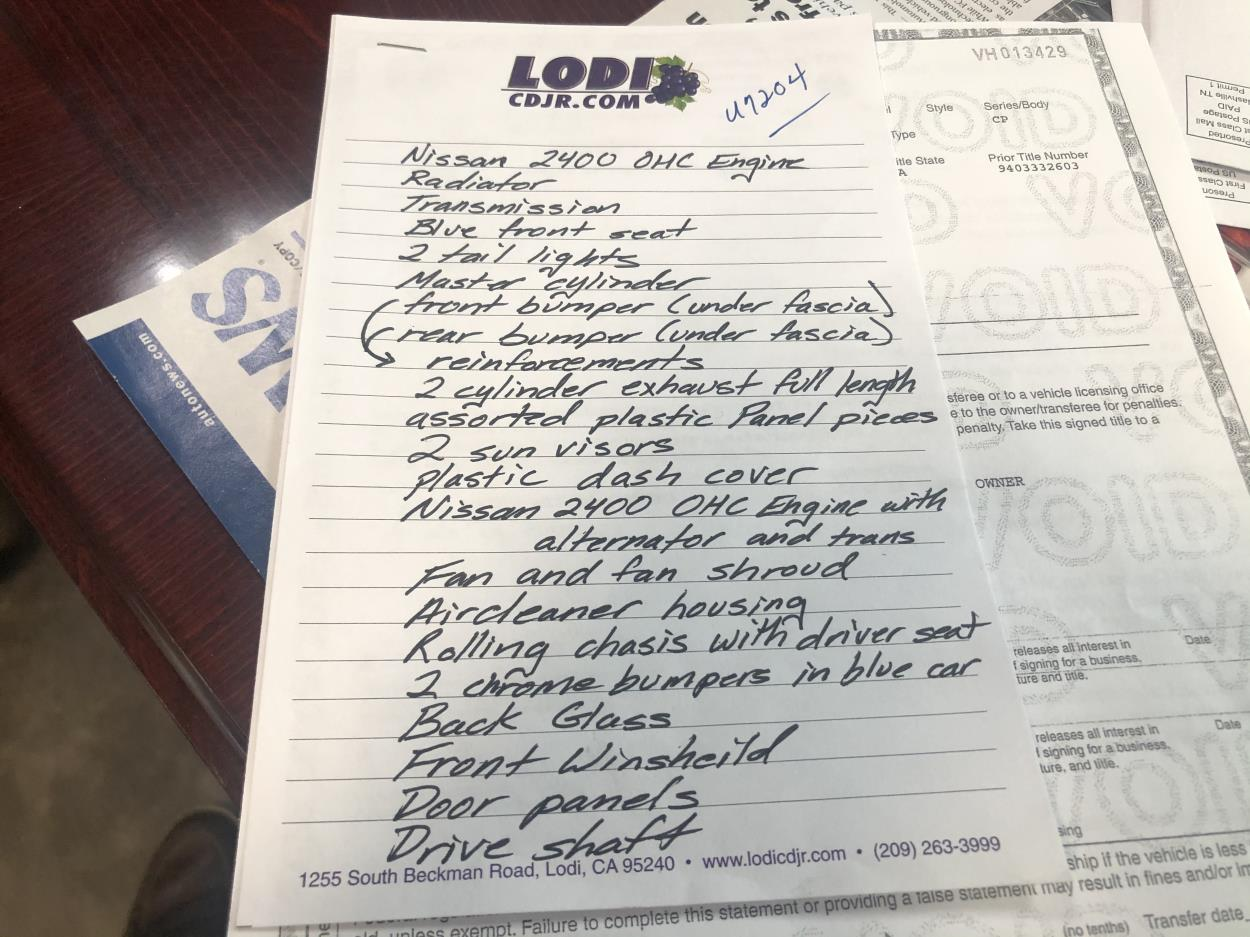 LODI
CDJR.COM
U7204
Nissan 2400 OHC Engine
Radiator
Transmission
Blue front seat
2 tail lights
Mastar cylinder
(front bumper (under fascia)
(rear bumper (under fascia)
reinforcements
2 cylinder exhaust full length
assorted plastic Panel pieces
2 sun visors
plastic dash cover
Nissan 2400 OHC Engine with
alternator and trans
Fan and fan shroud
Aircleaner housing
Rolling chasis with driver seat
2 chrome bumpers in blue car
Back Glass
Front Winsheild
Door panels
Drive shaft
1255 South Beckman Road, Lodi, CA 95240 • www.lodicdjr.com • (209) 263-3999
VH013429
Style
Series/Body
CP
Type
itle State
A
Prior Title Number
9403332603
VOID
sferee or to a vehicle licensing office
e to the owner/transferee for penalties.
penalty. Take this signed title to a
OWNER
releases all interest in
f signing for a business,
ture and title.
Date
releases all interest in
f signing for a business,
ture, and title.
Date
sing
ship if the vehicle is less
unless exempt. Failure to complete this statement or providing a false statement may result in fines and/or
(no tenths)
Transfer date
autonews.com
COPY
WS
Presorted
First Class Mail
US Postage
PAID
Nashville TN
Permit 1
First Class
US Posta